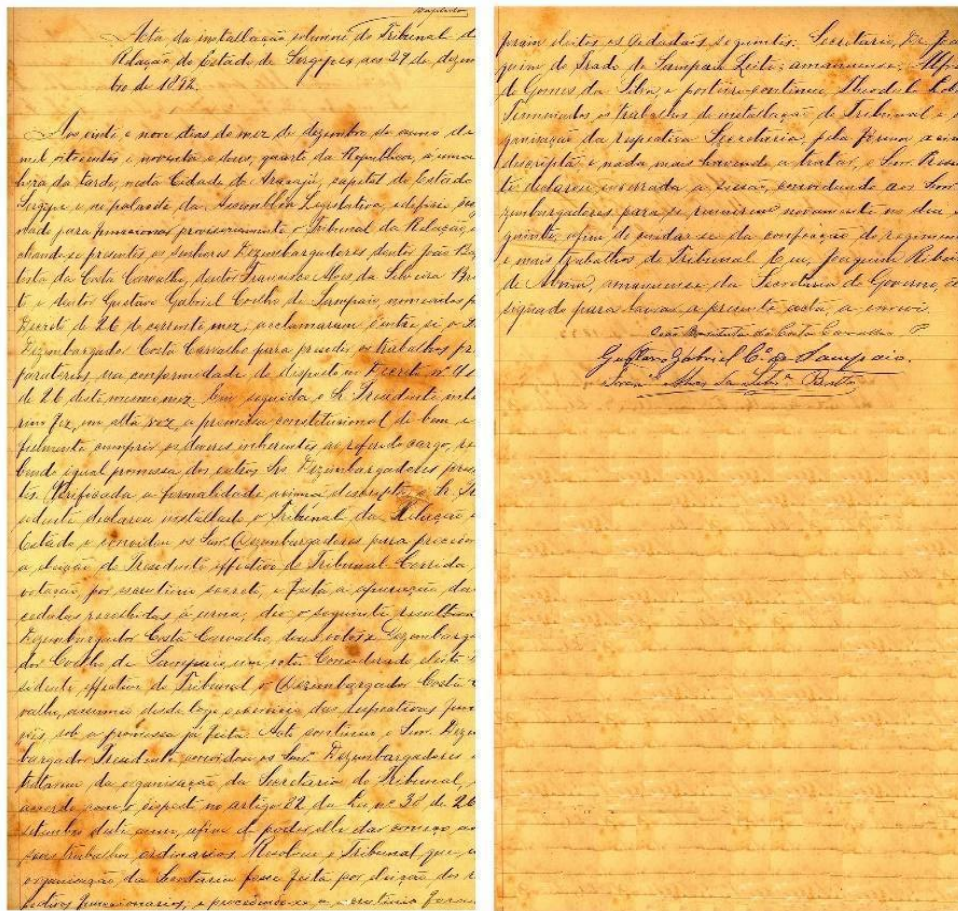 Acta da installação solemne do Tribunal da
Relação do Estado de Sergipe, aos 29 de dezem
bro de 1892.
Aos vinte e nove dias do mez de dezembro do anno de
mil oitocentos e noventa e dous, quarto da Republica, a uma
hora da tarde, nesta Cidade de Aracajú, capital do Estado
Sergipe e no palacete da Assembléa Legislativa, edificio
para funccionar provisoriamente o Tribunal da Relação,
achando-se presentes os senhores Dezembargadores doutor João Bap
tista da Costa Carvalho, doutor Francisco Alves da Silveira Bri
to e doutor Gustavo Gabriel Coelho de Sampaio, nomeados p
Decreto de 26 do corrente mez, acclamaram d'entre si, o
Dezembargador Costa Carvalho para presidir os trabalhos pre
paratorios na conformidade do disposto no Decreto nº
de 26 deste mesmo mez. Em seguida o Sr. Presidente inte
rino fez, em alta voz, a promessa constitucional de bem e
fielmente cumprir os deveres inherentes ao referido cargo, re
bendo igual promessa dos outros Srs. Dezembargadores presen
tes. Verificada a formalidade acima descripta, o Sr. Pre
sidente declarou installado o Tribunal da Relação
Estado e convidou os Snrs. Dezembargadores para
a eleição do Presidente effectivo do Tribunal. Corrida
votação, por escrutinio secreto, e feita a apuração das
cedulas recolhidas á urna, deo o seguinte resultado
Dezembargador Costa Carvalho, dous votos; Dezembarga
dor Coelho de Sampaio, um voto. Considerado eleito
sidente effectivo do Tribunal o Dezembargador Costa
valho, assumio desde logo o exercicio das respectivas func
ções, sob a promessa já feita. Acto continuo o Snr. Dezem
bargador Presidente convidou os Snrs. Dezembargadores
tratarem da organisação da Secretaria do Tribunal,
accordo com o disposto no artigo 82 da Lei nº 38 de 26
setembro deste anno, afim de poder elle dar começo aos
seus trabalhos ordinarios. Resolveu o Tribunal que a
organisação da Secretaria fosse feita por eleição dos
pectivos funccionarios, e procedendo-se a escrutinio foram
foram eleitos os cidadãos seguintes: Secretario, Dr. Joa
quim do Prado de Sampaio Leite; amanuense,
de Gomes da Silva, e porteiro-continuo, Theodulo
Terminados os trabalhos da installação do Tribunal e
ganisação da respectiva Secretaria, pela fórma acima
descripta e nada mais havendo a tratar, o Snr. Presiden
te declarou encerrada a sessão, convidando aos Snrs.
zembargadores para se reunirem novamente no dia
guinte, afim de cuidar-se da confecção do regimento
e mais trabalhos do Tribunal. Eu, Joaquim Ribeiro
de amanuense da Secretaria do Governo, de
signado para lavrar a presente acta, a escrevi.
João Baptista da Costa Carvalho P
Gustavo Gabriel C.º de Sampaio.
Franc.º Alves da Silv.ª Britto